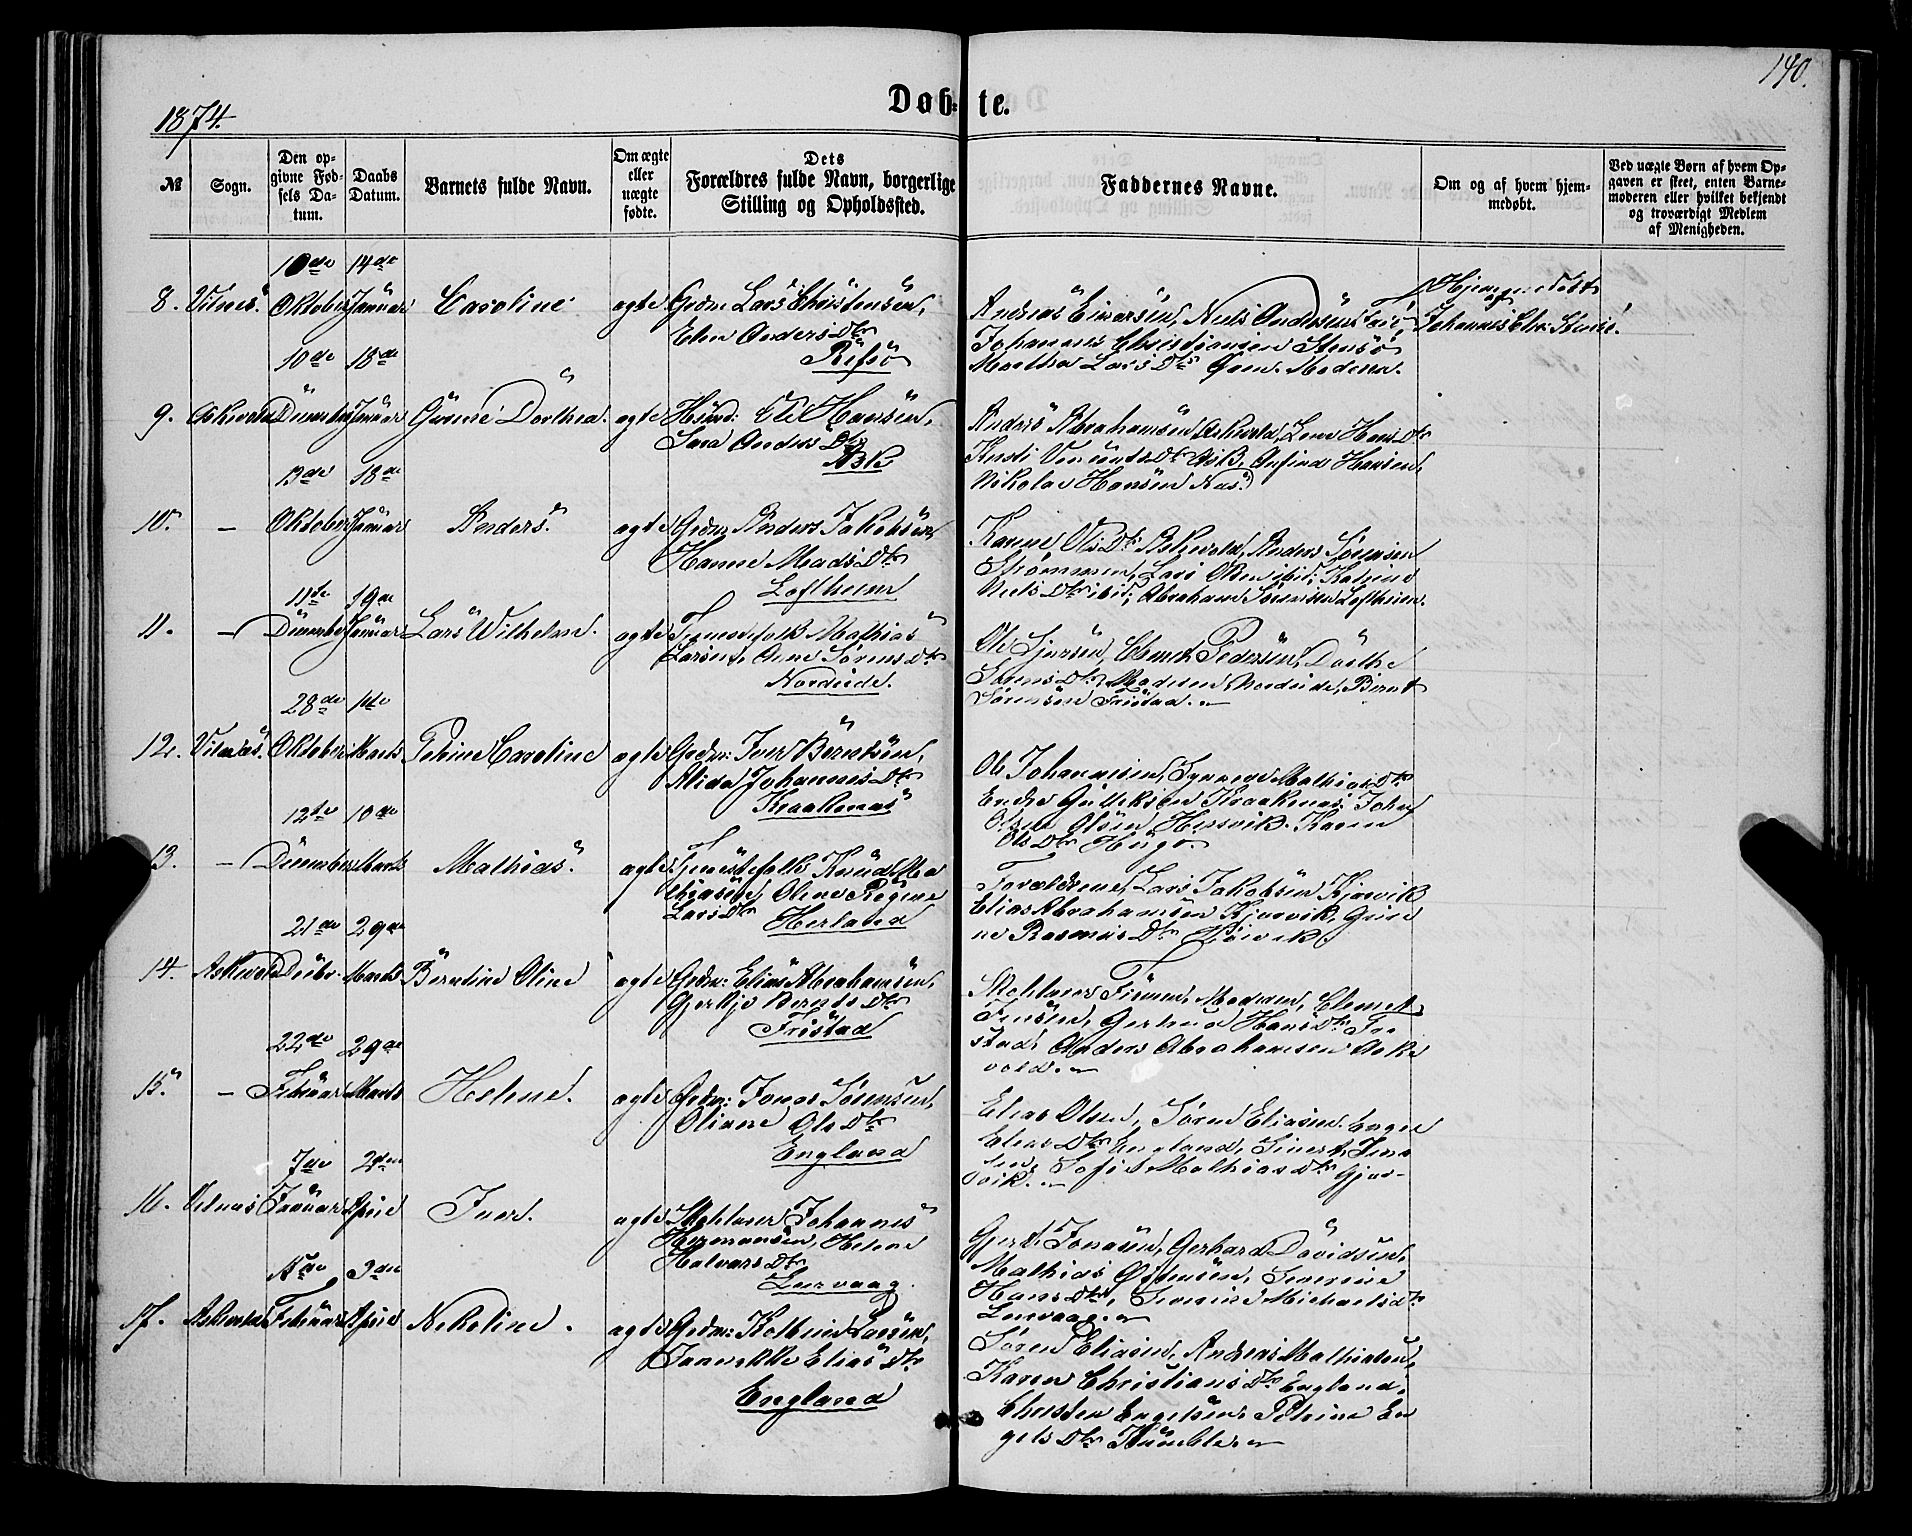 140.
1874.
Døb- te.
№
Sogn.
Den op-
givne Fød-
sels Da-
tum.
Daabs
Datum.
Barnets fulde Navn.
Om ægte
eller
uægte
fødte.
Dets
Forældres fulde Navn, borgerlige
Stilling og Opholdssted.
Faddernes Navne.
Om og af hvem hjem-
medøbt.
Ved uægte Børn af hvem Op-
gaven er skeet, enten Barne-
moderen eller hvilket bekjendt
og troværdigt Medlem
af Menigheden.
8. Vilnes. 10de Oktober 14de Januar Caroline ægte Grdm: Lars Christensen,
Elen Anders Dtr
Rifsø
Andreas Einarsen, Niels Andersen
Johannes Christiansen Stensø
Martha Lars Dtr Moderen.
Hjemmedøbt
af
Johannes Chr.
9. Askevold 10de December 18de Januar Gunne Dorthea. ægte Husmd: Ole Hansen,
Sara Anders Dtr
Ask
Anders Abrahamsen Askvold, Lene Hans Dtr
Ask, Hansen,
Nikolai Hansen
10. — 13de Oktober 18de Januar Anders. ægte Grdm: Anders Jakobsen,
Hanne Mads Dtr
Loftheim
Karine Ols Dtr Askevold, Anders Sørensen
Strømmen, Lars Olsen ibid; Katrine
Niels Dtr ibid; Abraham Sørensen Loftheim.
11. — 11te December 19de Januar Lars Wilhelm. ægte Tjenestefolk Mathias
Larsen, Anne Sørens Dtr
Nordeide.
Ole Sjursen, Pedersen, Dorthe
Sørens Dtr, Moderen, Nordeide, Bernt
Sørensen Fristad.
12. Vilnæs. 28de Oktober 1ste Marts Petrine Caroline ægte Grdm: Iver Berntsen,
Alida Johannes Dtr
Kraakenæs
Ole Johannesen, Synneve Mathias Dtr
Endre Gulliksen Kraakenæs, John
Olsen Hersvik. Karen
Ols Dtr
13. — 12te December 10de Marts Mathias. ægte Tjenestefolk Knud Ma
thiasen, Oline Regine
Lars Dtr Herland
Forældrene, Lars Jakobsen Kjørvik
Elias Abrahamsen Kjørvik,
ne Rasmus Dtr
14. Askevold 21de Decbr. 29de Marts Berntine Oline ægte Grdm: Elias Abrahamsen,
Gjertje Bernts Dtr
Fristad
Skolelærer Moderen, Clemet
Jensen, Gertrud Hans Dtr Fri
stad, Anders Abrahamsen Aske
vold.
15. — 22de Februar 29de Marts Helene. ægte Grdm: Jonas Sørensen,
Oliane Ols Dtr
England
Elias Olsen, Søren Eliasen, Inger
Elias Dtr England, Sivert
Sofie Mathias Dtr Gjør-
vik.
16. Vilnæs 7de Januar 2den April Iver. ægte Skolelærer Johannes
Hermansen, Helene
Halvars Dtr
Leirvaag.
Gjert Jonasen, Gerhard Davidsen,
Mathias Østensen, Severine
Hans Dtr, Severine Michaels Dtr
Leervaag.
17. Askevold 15de Februar 3die April Nikoline. ægte Grdm: Larsen,
Elias Dtr
England
Søren Eliasen, Andreas Mathiasen,
Karen Christians Dtr England,
Christen Engelsen, Petrine En
gels Dtr Humble.